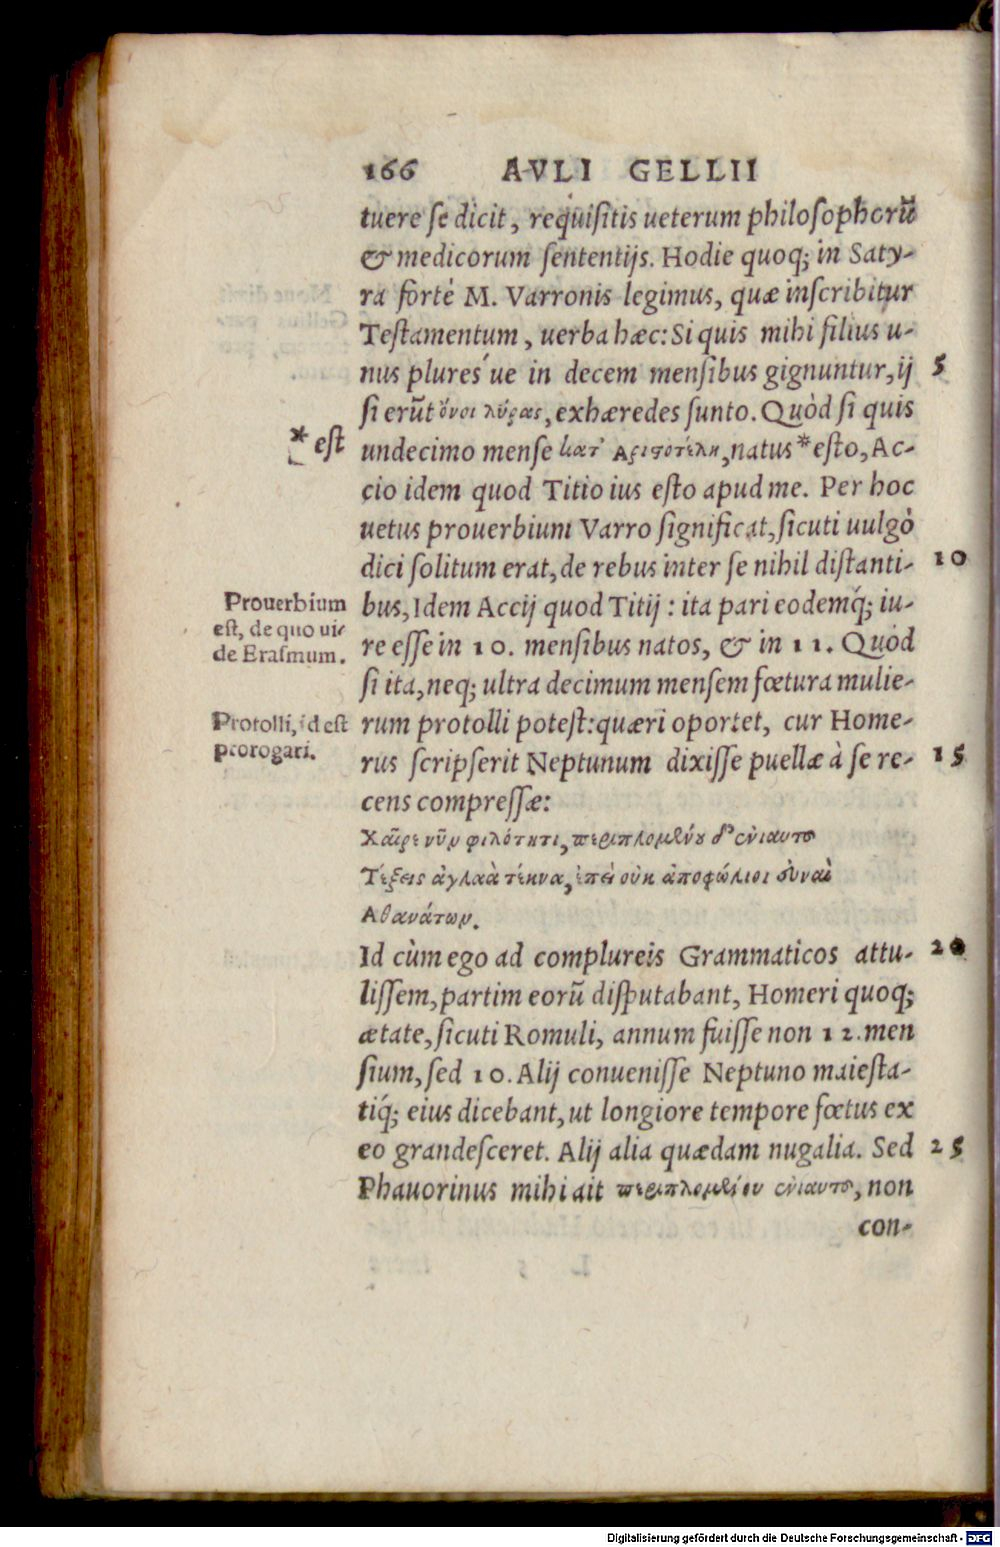 166 AVLI GELLII
tuere se dicit, requisitis ueterum philosophorũ
& medicorum sententijs. Hodie quoq; in Saty-
ra fortè M. Varronis legimus, quæ inscribitur
Testamentum, uerba hæc: Si quis mihi filius u-
nus pluresúe in decem mensibus gignuntur, ij 5
si erũt ὄνοι λύρας, exhæredes sunto. Quòd si quis
* est
undecimo mense κατ' Αριστοτέλη, natus * esto, Ac-
cio idem quod Titio ius esto apud me. Per hoc
uetus prouerbium Varro significat, sicuti uulgò
dici solitum erat, de rebus inter se nihil distanti- 10
Prouerbium
est, de quo ui-
de Erasmum.
bus, Idem Accij quod Titij: ita pari eodemq́; iu-
re esse in 10. mensibus natos, & in 11. Quòd
si ita, neq; ultra decimum mensem fœtura mulie-
Protolli, id est
prorogari.
rum protolli potest: quæri oportet, cur Home-
rus scripserit Neptunum dixisse puellæ à se re- 15
cens compressæ:
Χαῖρε γῦν φιλότητι, περιπλομένου δ' ἐνιαυτοῦ
Τέξεις ἀγλαὰ τέκνα, ἐπεὶ οὐκ ἀποφώλιοι εὐναὶ
Αθανάτων.
Id cùm ego ad complureis Grammaticos attu- 20
lissem, partim eorũ disputabant, Homeri quoq;
ætate, sicuti Romuli, annum fuisse non 12. men
sium, sed 10. Alij conuenisse Neptuno maiesta-
tiq́; eius dicebant, ut longiore tempore fœtus ex
eo grandesceret. Alij alia quædam nugalia. Sed 25
Phauorinus mihi ait περιπλομένου ἐνιαυτοῦ, non
con-
Digitalisierung gefördert durch die Deutsche Forschungsgemeinschaft - DFG